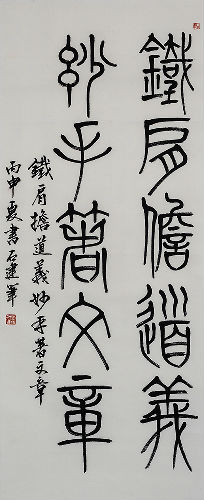 鐵肩擔道義
妙手著文章
鐵肩擔道義妙手著文章
丙申夏書石建軍